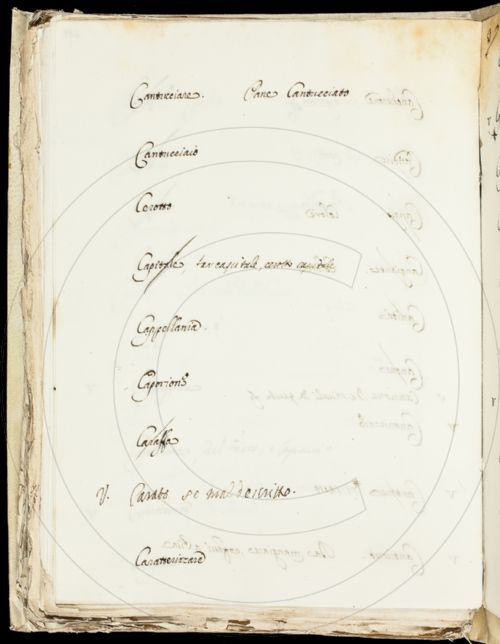 Cantucciare. Pane Cantucciato
Cantucciaio
Cerotto
Capitale, far capitale, cerotto capitale
Cappellania.
Caperione
Caraffa
V. Carato se mal descritto.
Caratterizzare